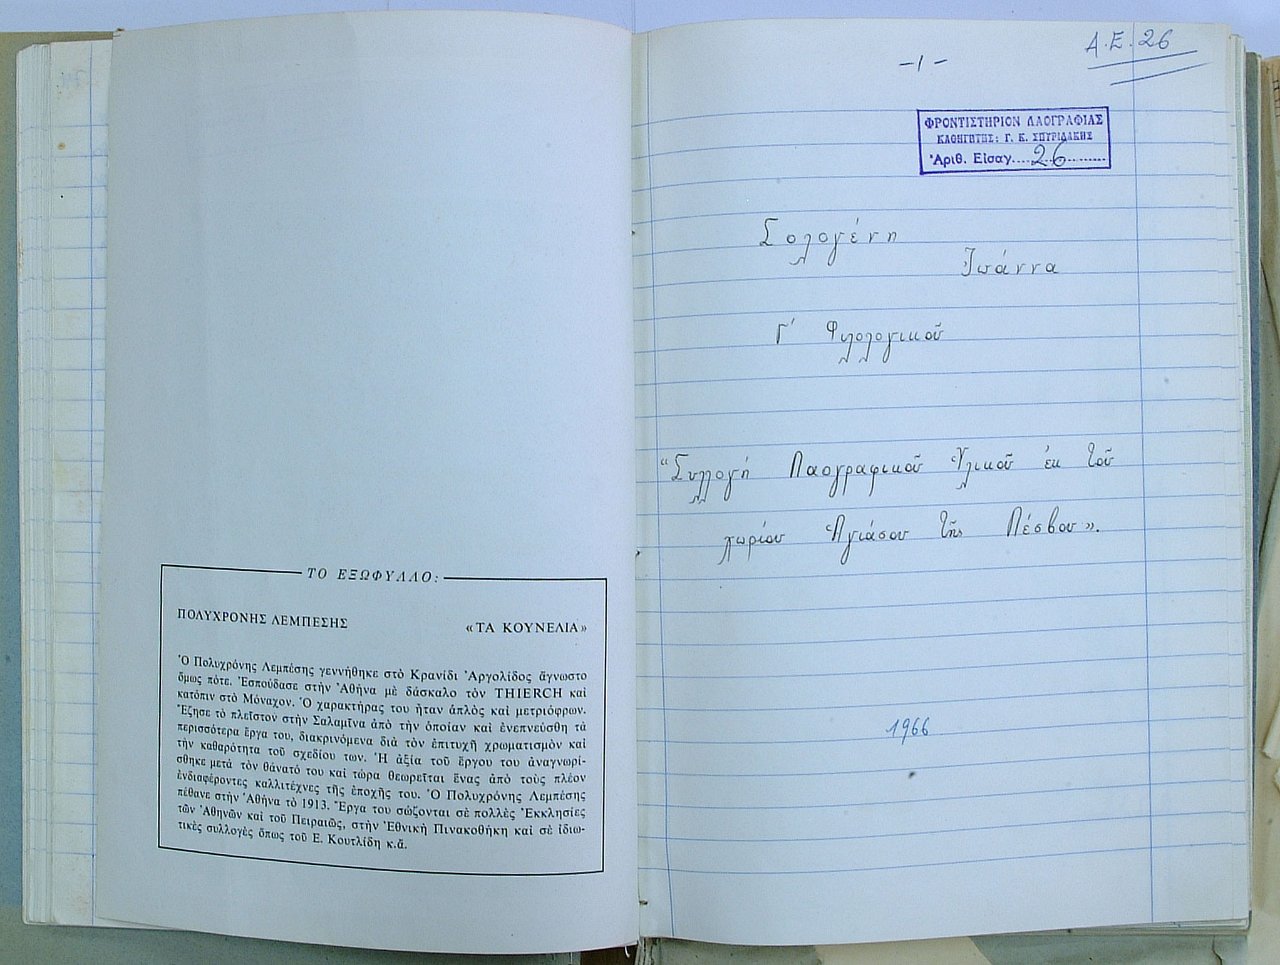 ΤΟ ΕΞΩΦΥΛΛΟ:
ΠΟΛΥΧΡΟΝΗΣ ΛΕΜΠΕΣΗΣ «ΤΑ ΚΟΥΝΕΛΙΑ»
Ὁ Πολυχρόνης Λεμπέσης γεννήθηκε στὸ Κρανίδι Ἀργολίδος ἄγνωστο
ὅμως πότε. Ἐσπούδασε στὴν Ἀθήνα μὲ δάσκαλο τὸν THIERCH καὶ
κατόπιν στὸ Μόναχον. Ὁ χαρακτήρας του ἦταν ἁπλὸς καὶ μετριόφρων.
Ἔζησε τὸ πλεῖστον στὴν Σαλαμῖνα ἀπὸ τὴν ὁποίαν καὶ ἐνεπνεύσθη τὰ
περισσότερα ἔργα του, διακρινόμενα διὰ τὸν ἐπιτυχῆ χρωματισμὸν καὶ
τὴν καθαρότητα τοῦ σχεδίου των. Ἡ ἀξία τοῦ ἔργου του ἀναγνωρί-
σθηκε μετὰ τὸν θάνατό του καὶ τώρα θεωρεῖται ἕνας ἀπὸ τοὺς πλέον
ἐνδιαφέροντες καλλιτέχνες τῆς ἐποχῆς του. Ὁ Πολυχρόνης Λεμπέσης
πέθανε στὴν Ἀθήνα τὸ 1913. Ἔργα του σώζονται σὲ πολλὲς Ἐκκλησίες
τῶν Ἀθηνῶν καὶ τοῦ Πειραιῶς, στὴν Ἐθνικὴ Πινακοθήκη καὶ σὲ ἰδιω-
τικὲς συλλογὲς ὅπως τοῦ Ε. Κουτλίδη κ.ἄ.
-1-
Α.Ε. 26
ΦΡΟΝΤΙΣΤΗΡΙΟΝ ΛΑΟΓΡΑΦΙΑΣ
ΚΑΘΗΓΗΤΗΣ: Γ. Κ. ΣΠΥΡΙΔΑΚΗΣ
Ἀριθ. Εἰσαγ.....26.........
Σολογένη
Ἰωάννα
Γ΄ Φιλολογικοῦ
"Συλλογή Λαογραφικοῦ Ὑλικοῦ ἐκ τοῦ
χωρίου Ἁγιάσου τῆς Λέσβου».
1966